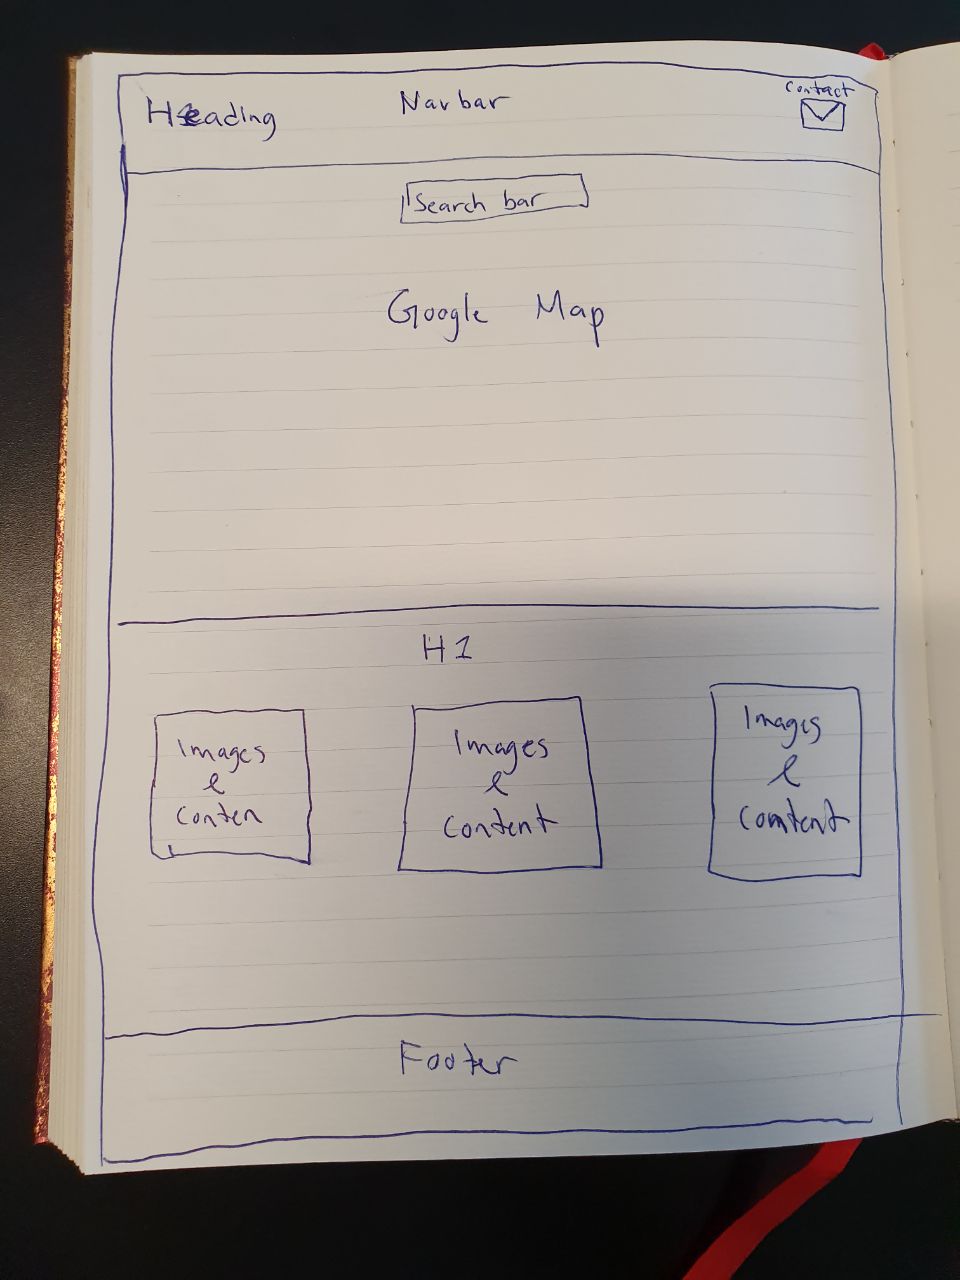 Heading
Navbar
contact
Search bar
Google Map
H1
Images
&
Conten
Images
&
Content
Images
&
Content
Footer